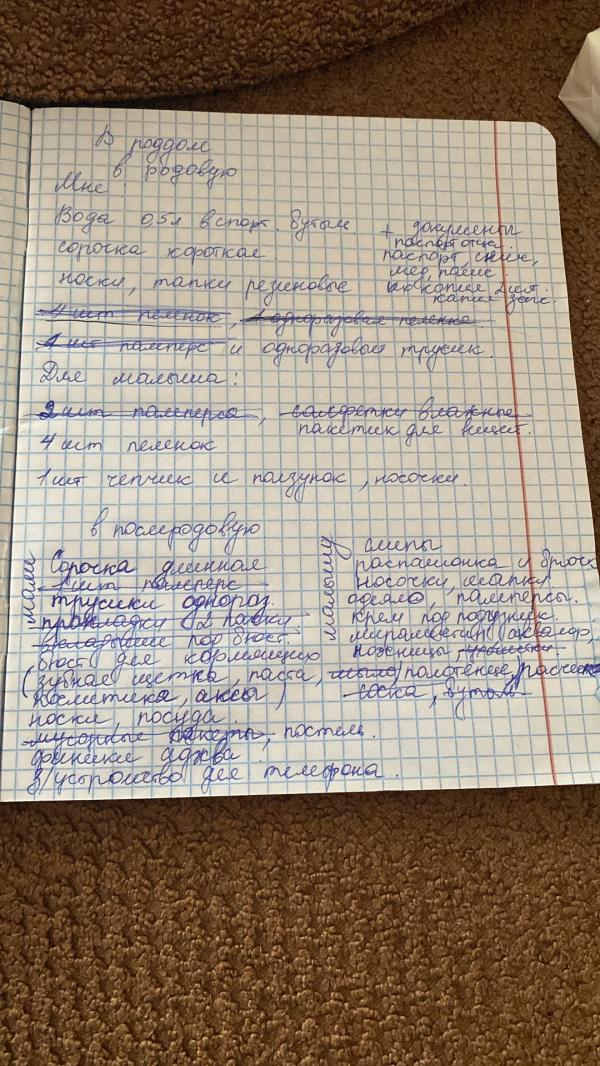 В роддом
в родовую
Мне:
Вода 0,5л в спорт. бутыл.
сорочка короткая.
носки, тапки резиновые
+ документы
паспорт отца.
паспорт, снилс,
мед, полис
копия зспс.
4 шт пеленок, 1 одноразовая пеленка.
1 шт памперс и одноразовый трусик.
Для малыша:
2 шт памперса, салфетки влажные
пакетик для вещей.
4 шт пеленок
1 шт чепчик и ползунок, носочки.
в послеродовую
маме
Сорочка длинная
1 шт памперс
трусики однораз.
прокладки 2 пачки
вкладыши под бюст.
бюст для кормящих
(зубная щетка, паста, мыло, полотенце, расческа
косметика, аксы)
носки, посуда.
мусорные пакеты, постель.
финики
з/устройство для телефона.
малышу
слипы
распашонка и брючк
носочки, шапки
одеяло, памперсы.
крем под подгузник.
мирамистин, аквалор,
ножницы,
соска, бутыл